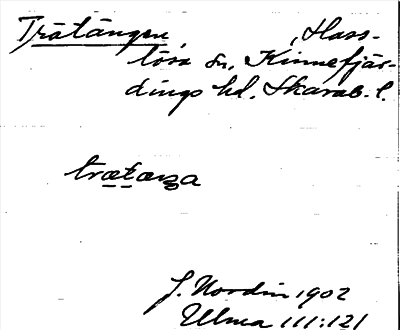 Trätängen, Hass-
lösa sn, Kinnefjär-
dings hd. Skarab. l.
trætæŋa
J. Nordin 1902
Ulma 111:121